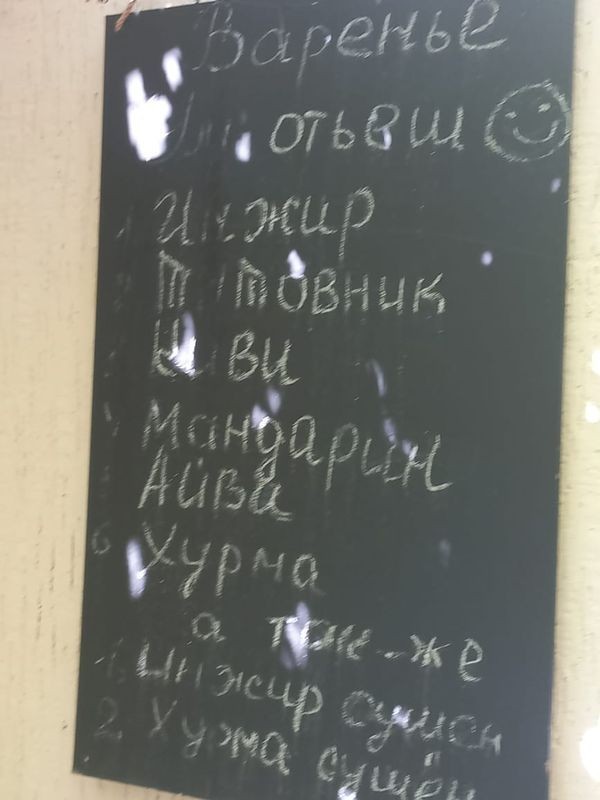 Варенье
отьеш
1 Инжир
2 Тутовник
3 Киви
4 Мандарин
5 Айва
6 Хурма
а так-же
1 Инжир сушен
2 Хурма сушён